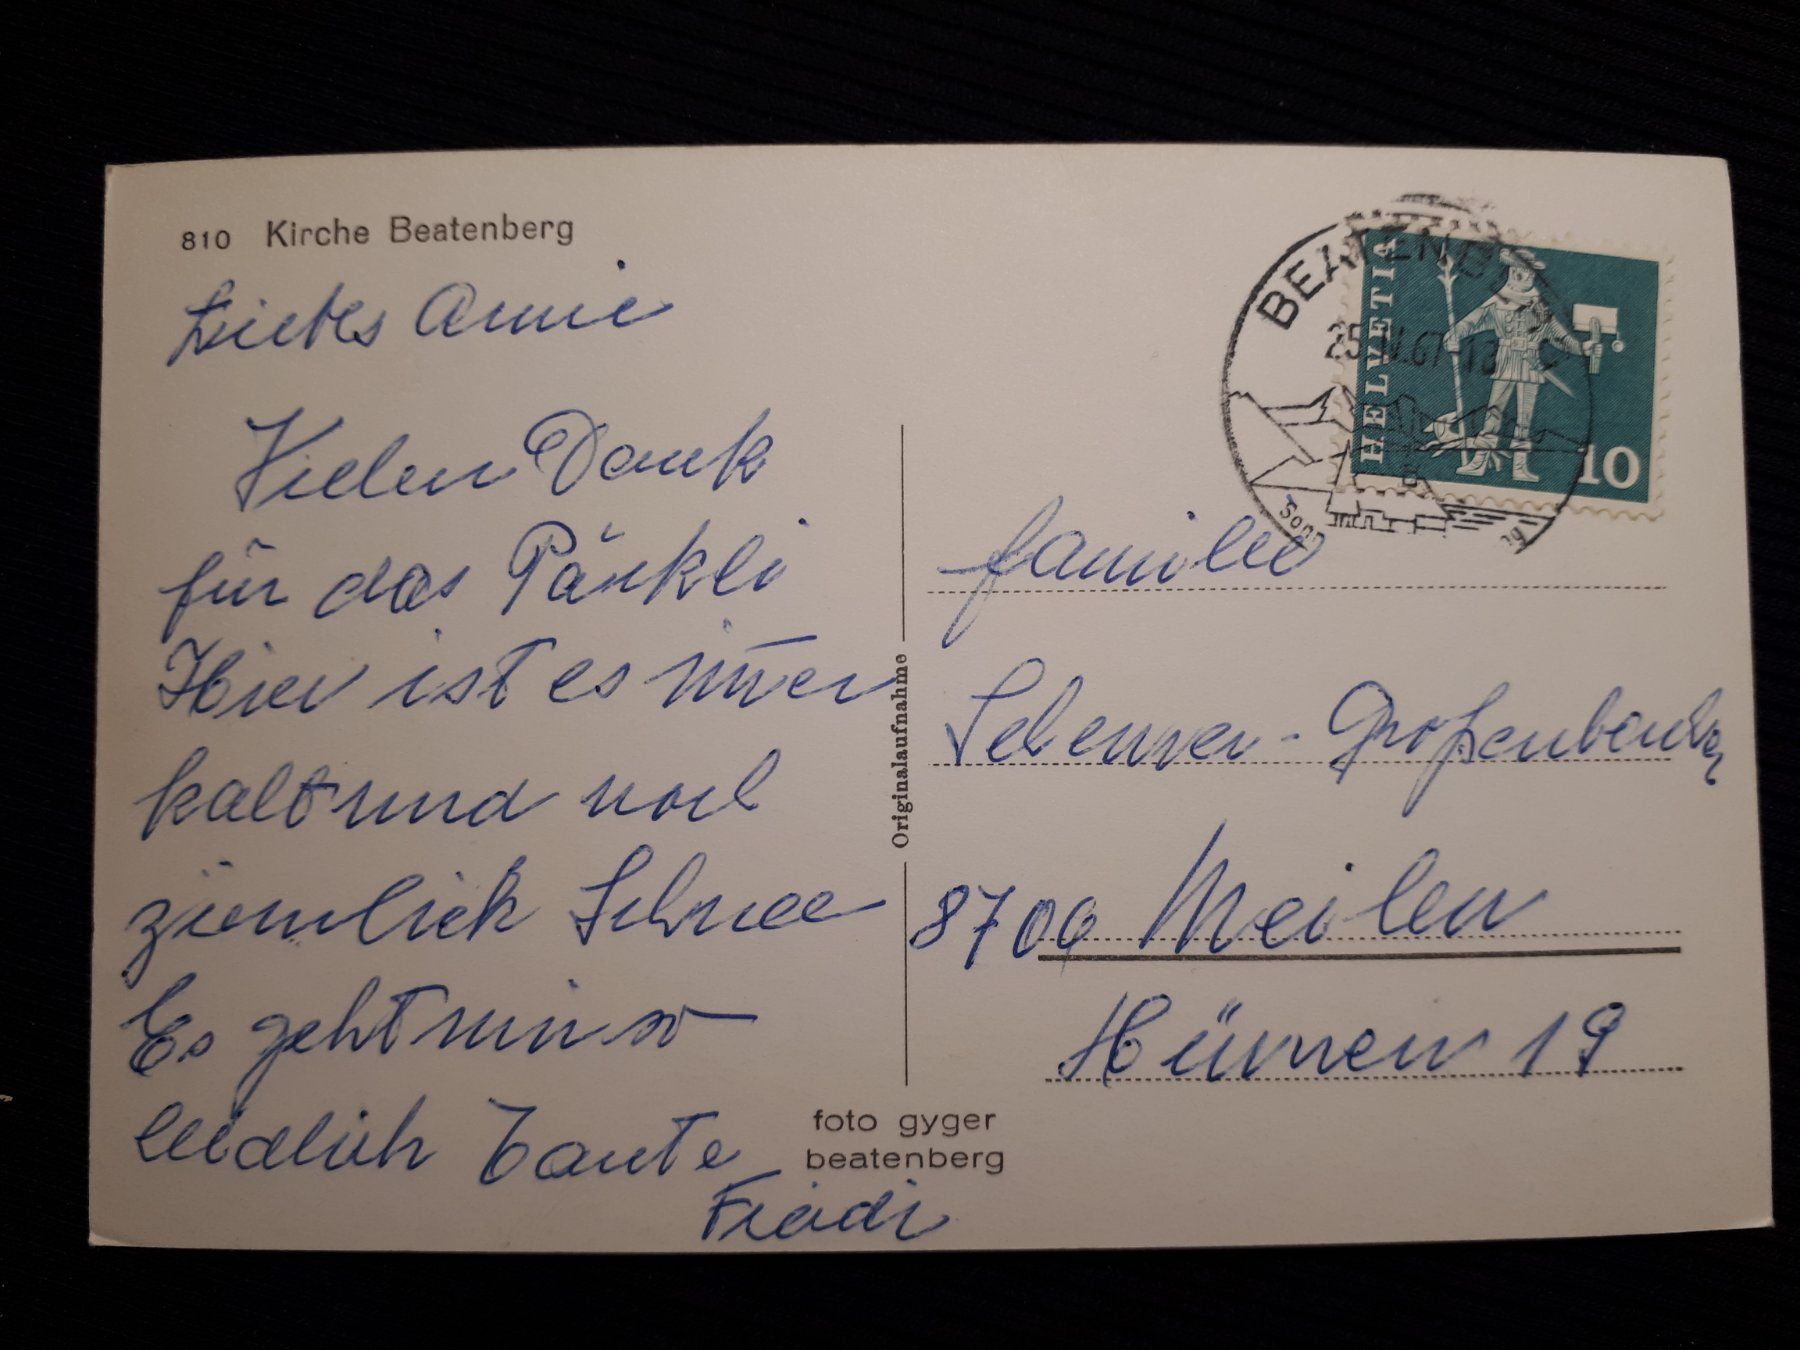 810 Kirche Beatenberg
Liebes Annie
Vielen Dank
für das Päckli
Hier ist es im̄er
kalt und noch
ziemlich Schnee
Es geht mir so
leidlich Tante
Friedi
Originalaufnahme
foto gyger
beatenberg
BEATENBERG
25.IV.67-18
HELVETIA
10
Familie
8706 Meilen
Hürnen 19